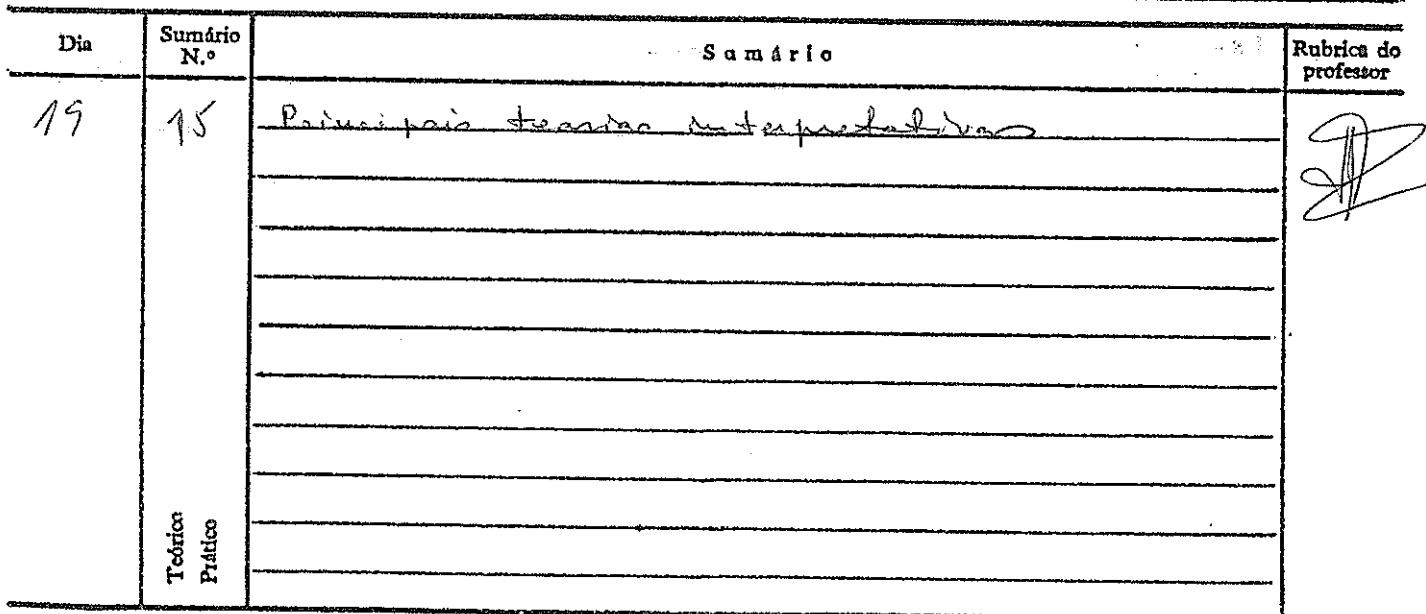 Dia
Sumário
N.º
Sumário
Rubrica do
professor
19
15
Principais teorias interpretativas
Teórico
Prático